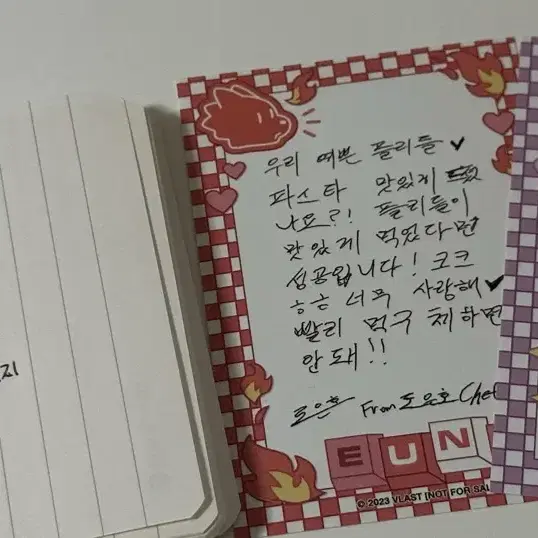 지
우리 예쁜 플리들
파스타 맛있게 드셨
나요?! 플리들이
맛있게 먹었다면
성공입니다! ㅋㅋ
ㅎㅎ 너무 사랑해
빨리 먹구 체하면
안돼!!
From 도은호 Chef
EUN
© 2023 VLAST [NOT FOR SAL